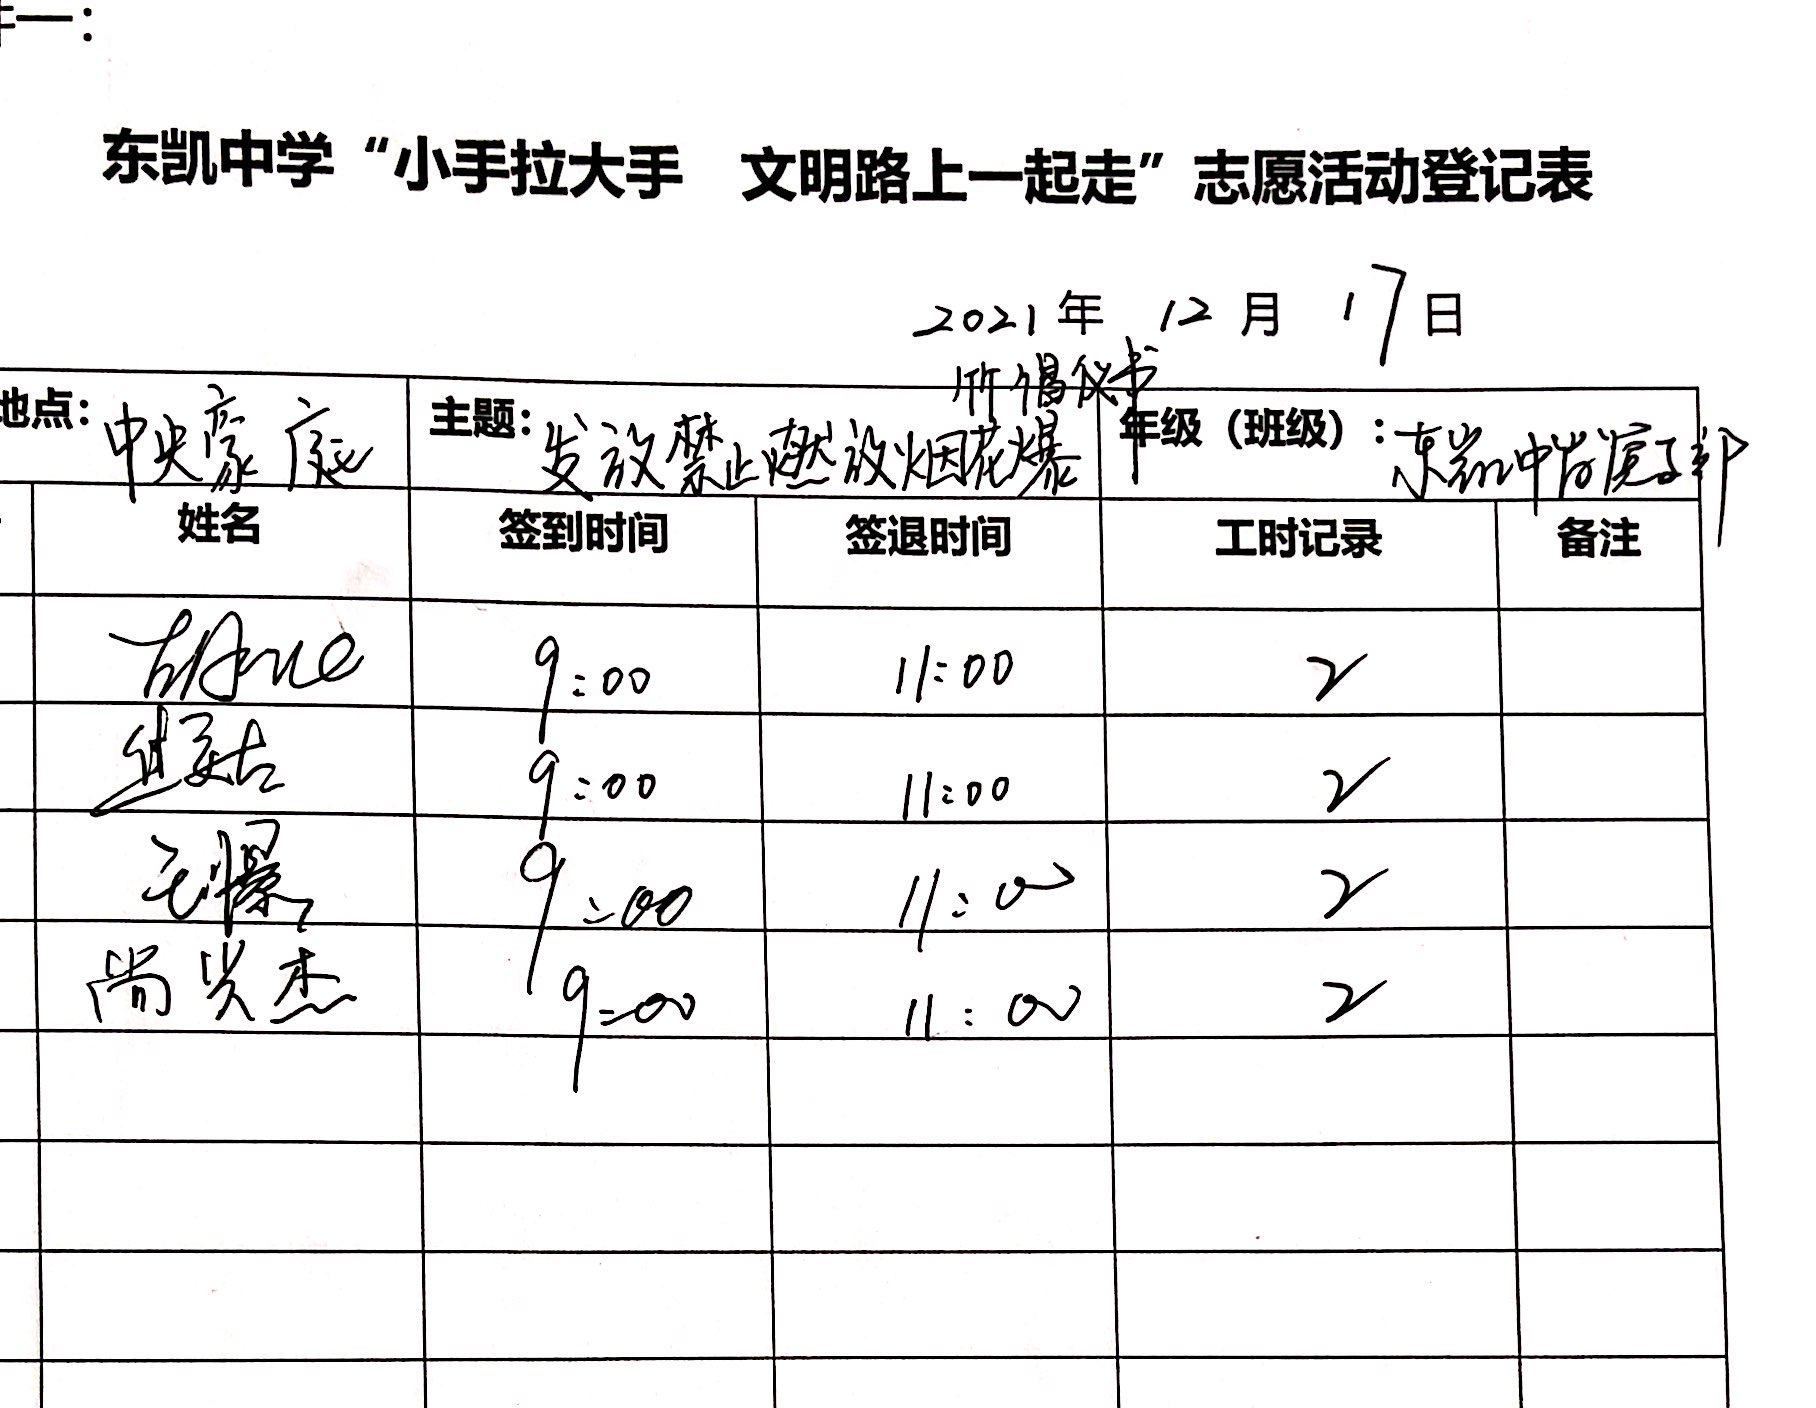 件一：
东凯中学“小手拉大手 文明路上一起走”志愿活动登记表
2021年 12月 17日
地点：中央豪庭 主题：发放禁止燃放烟花爆竹倡议书 年级（班级）：东凯中学
姓名 签到时间 签退时间 工时记录 备注
9:00 11:00 2
9:00 11:00 2
9:00 11:00 2
尚 杰 9:00 11:00 2